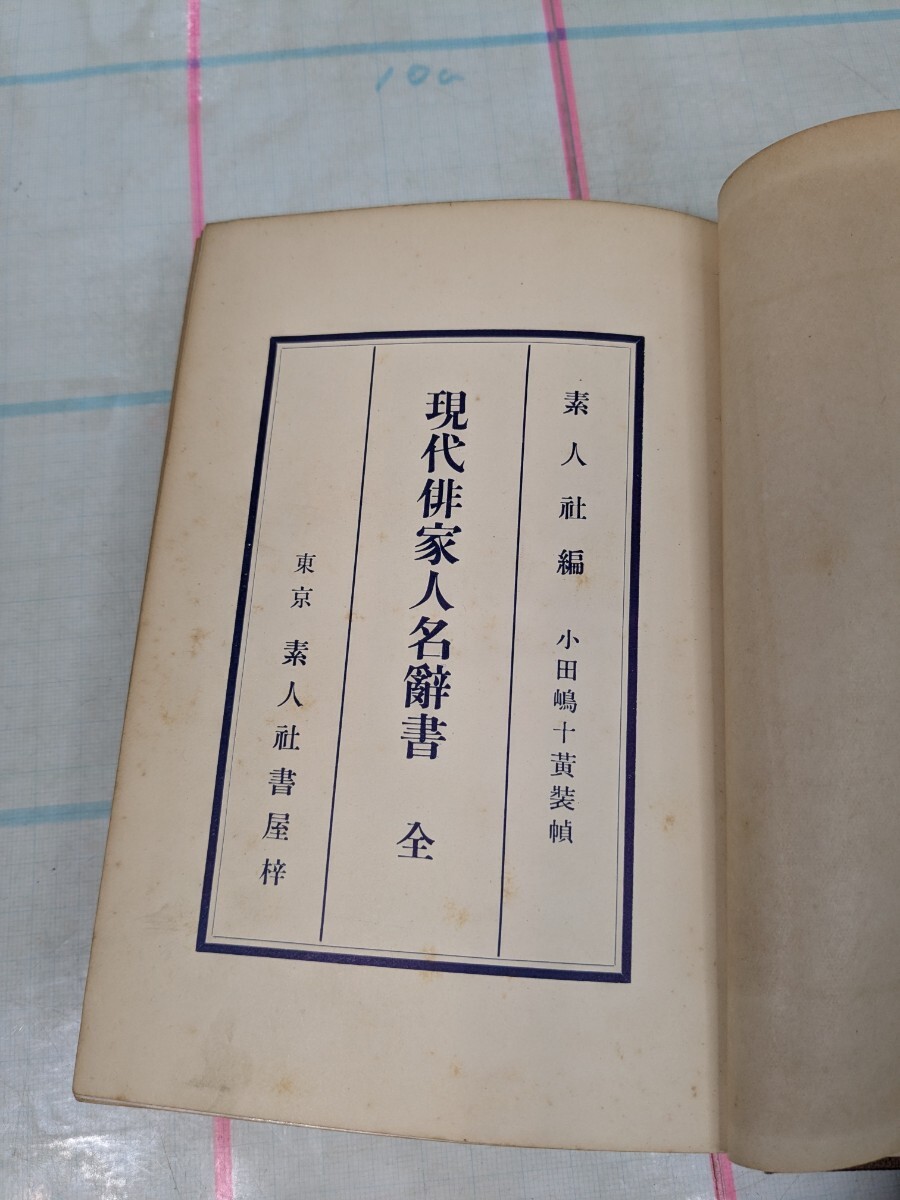 素人社編 小田嶋十黄装幀
現代俳家人名辭書 全
東京 素人社書屋梓
100